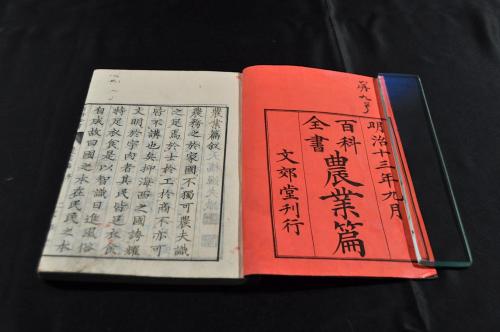 明治十三年九月
百科
全書
農業篇
文郊堂刊行
農業篇叙
農務之於家國不獨可農夫識
之足焉於士於工於商不亦可
不講也矣抑海西之國誇耀
文明於宇内者其民皆
足衣食是以智識日進風俗
自成故曰國之本在民民之本